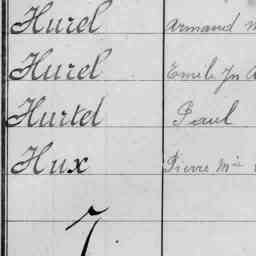 Hurel Armand
Hurel Emile Jn
Hurtel Paul
Hux Pierre Mie